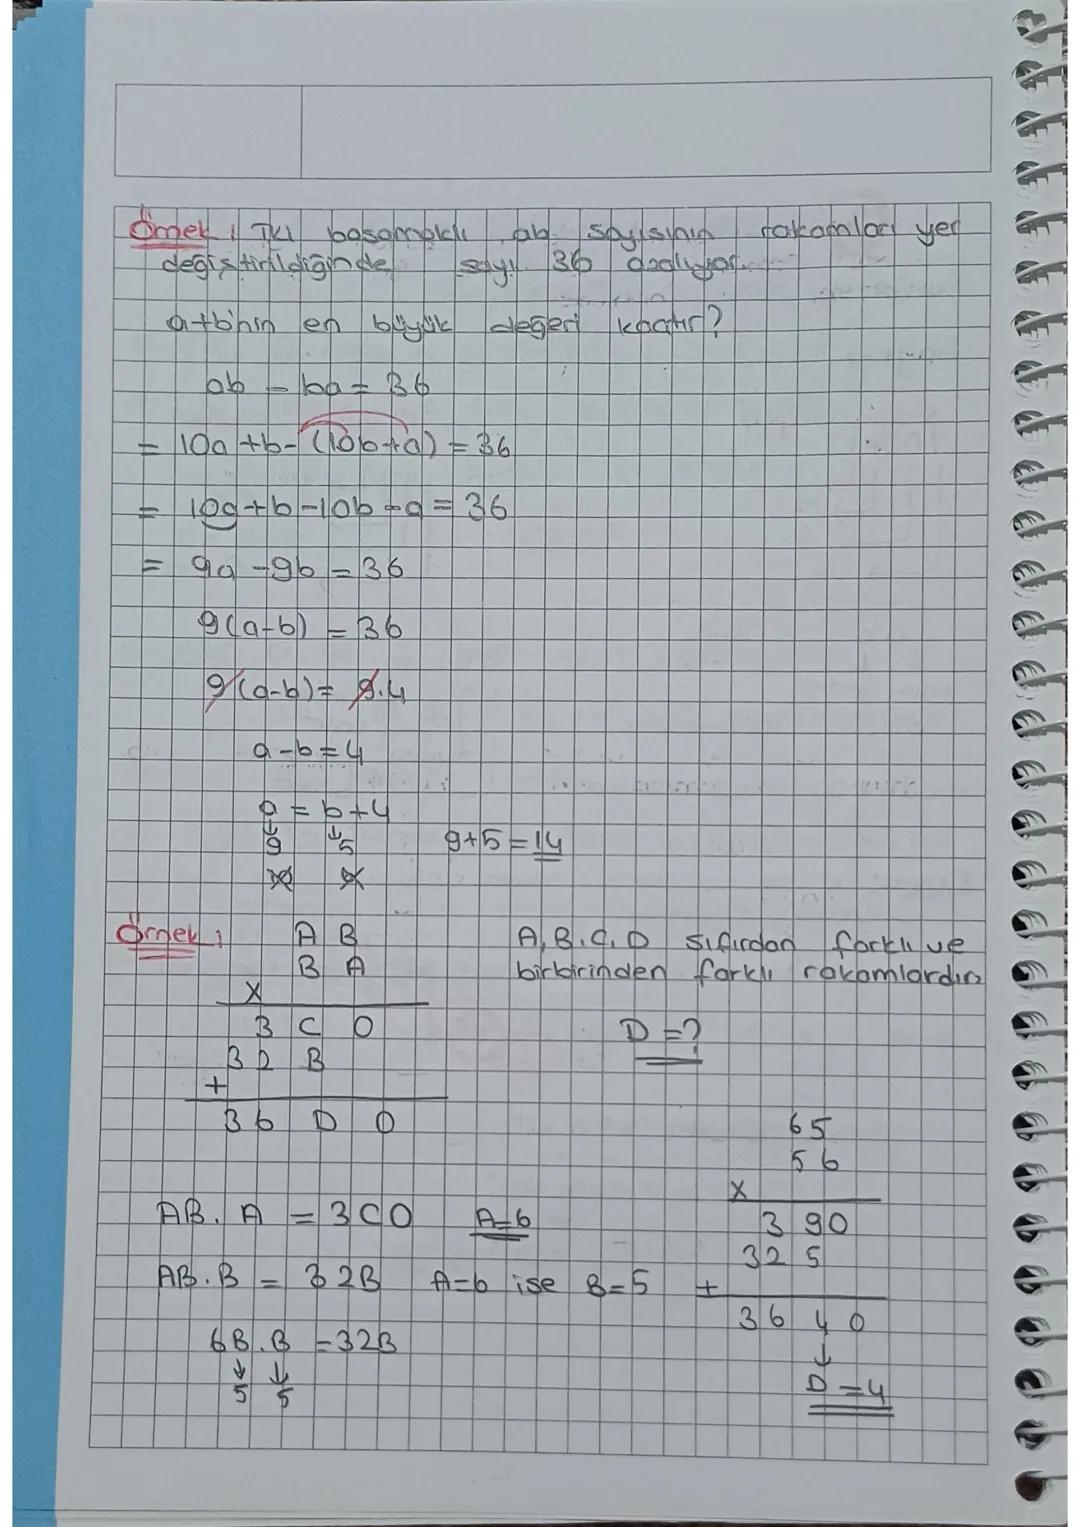 Örnek : İki basamaklı ab sayısının rakamları yer
değiştirildiğinde sayı 36 azalıyor.
a+b'nin en büyük değeri kaçtır?
ab - ba = 36
= 10a+b-(10b+a) = 36
= 10a+b-10b-a = 36
= 9a-9b = 36
9(a-b) = 36
9(a-b) = 9.4
a-b=4
a = b+4
↓ ↓
9 5 9+5=14
Örnek : A B A, B, C, D sıfırdan farklı ve
B A birbirinden farklı rakamlardır.
x
3 C 0 D=?
3 2 B
+
3 6 D 0
65
56
x
AB. A = 3C0 A=6 3 90
32 5
AB.B = 32B A=6 ise B=5 +
36 4 0
6B.B = 32B ↓
↓ ↓ D=4
5 5